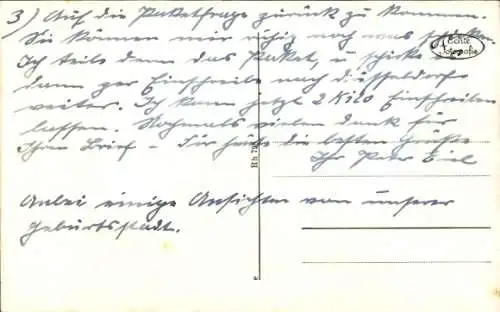 3) Auf die Paketfrage zurück zu kommen.
Sie können mir ruhig noch was schicken.
Ich teile dann das Paket, u. schicke
dann per Einschreiben nach Düsseldorf
weiter. Ich kann jetzt 2 Kilo Einschreiben
lassen. Nochmals vielen Dank für
Ihren Brief – Für heute die besten Grüße
Ihr Peter
Anbei einige Ansichten von unserer
Geburtsstadt.
Echte
Fotografie